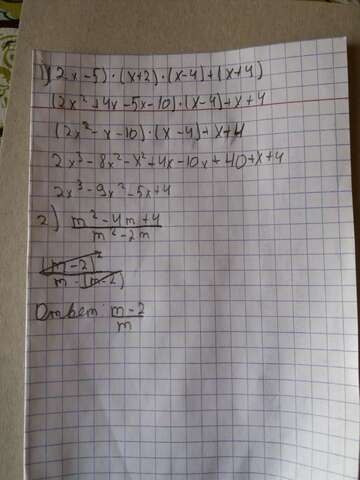 1) (2x-5)·(x+2)·(x-4)+(x+4)
(2x²+4x-5x-10)·(x-4)+x+4
(2x²-x-10)·(x-4)+x+4
2x³-8x²-x²+4x-10x+40+x+4
2x³-9x²-5x+4
2) \frac{m²-4m+4}{m²-2m}
\frac{(m-2)²}{m-(m-2)}
Ответ: \frac{m-2}{m}